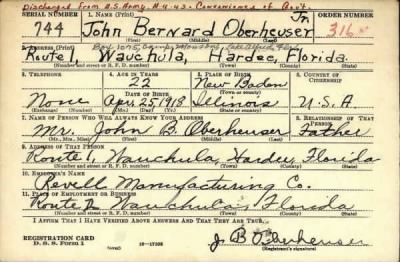 Discharged from U.S. Army. 11-9-43. Convenience of Gov't.
SERIAL NUMBER 1. NAME (Print) Jr.
744 John Bernard Oberheuser 316
(First) (Middle) (Last)
2. ADDRESS (Print) Box 1075, Camp
Route 1, Wauchula, Hardee, Florida.
(Number and street or R. F. D. number) (Town) (County) (State)
3. TELEPHONE 4. AGE IN YEARS 5. PLACE OF BIRTH 6. COUNTRY OF CITIZENSHIP
22 New Baden
DATE OF BIRTH (Town or county)
None Apr. 25, 1918 Illinois U.S.A.
(Exchange) (Number) (Mo.) (Day) (Yr.) (State or country)
7. NAME OF PERSON WHO WILL ALWAYS KNOW YOUR ADDRESS 8. RELATIONSHIP OF THAT PERSON
Mr. John B. Oberheuser Father
(Mr., Mrs., Miss) (First) (Middle) (Last)
9. ADDRESS OF THAT PERSON
Route 1, Wauchula, Hardee, Florida
(Number and street or R. F. D. number) (Town) (County) (State)
10. EMPLOYER'S NAME
Revell Manufacturing Co.
11. PLACE OF EMPLOYMENT OR BUSINESS
Route 2 Wauchula, Florida
(Number and street or R. F. D. number) (Town) (County) (State)
I AFFIRM THAT I HAVE VERIFIED ABOVE ANSWERS AND THAT THEY ARE TRUE.
REGISTRATION CARD
D. S. S. Form 1 J B Oberheuser
(Registrant's signature)